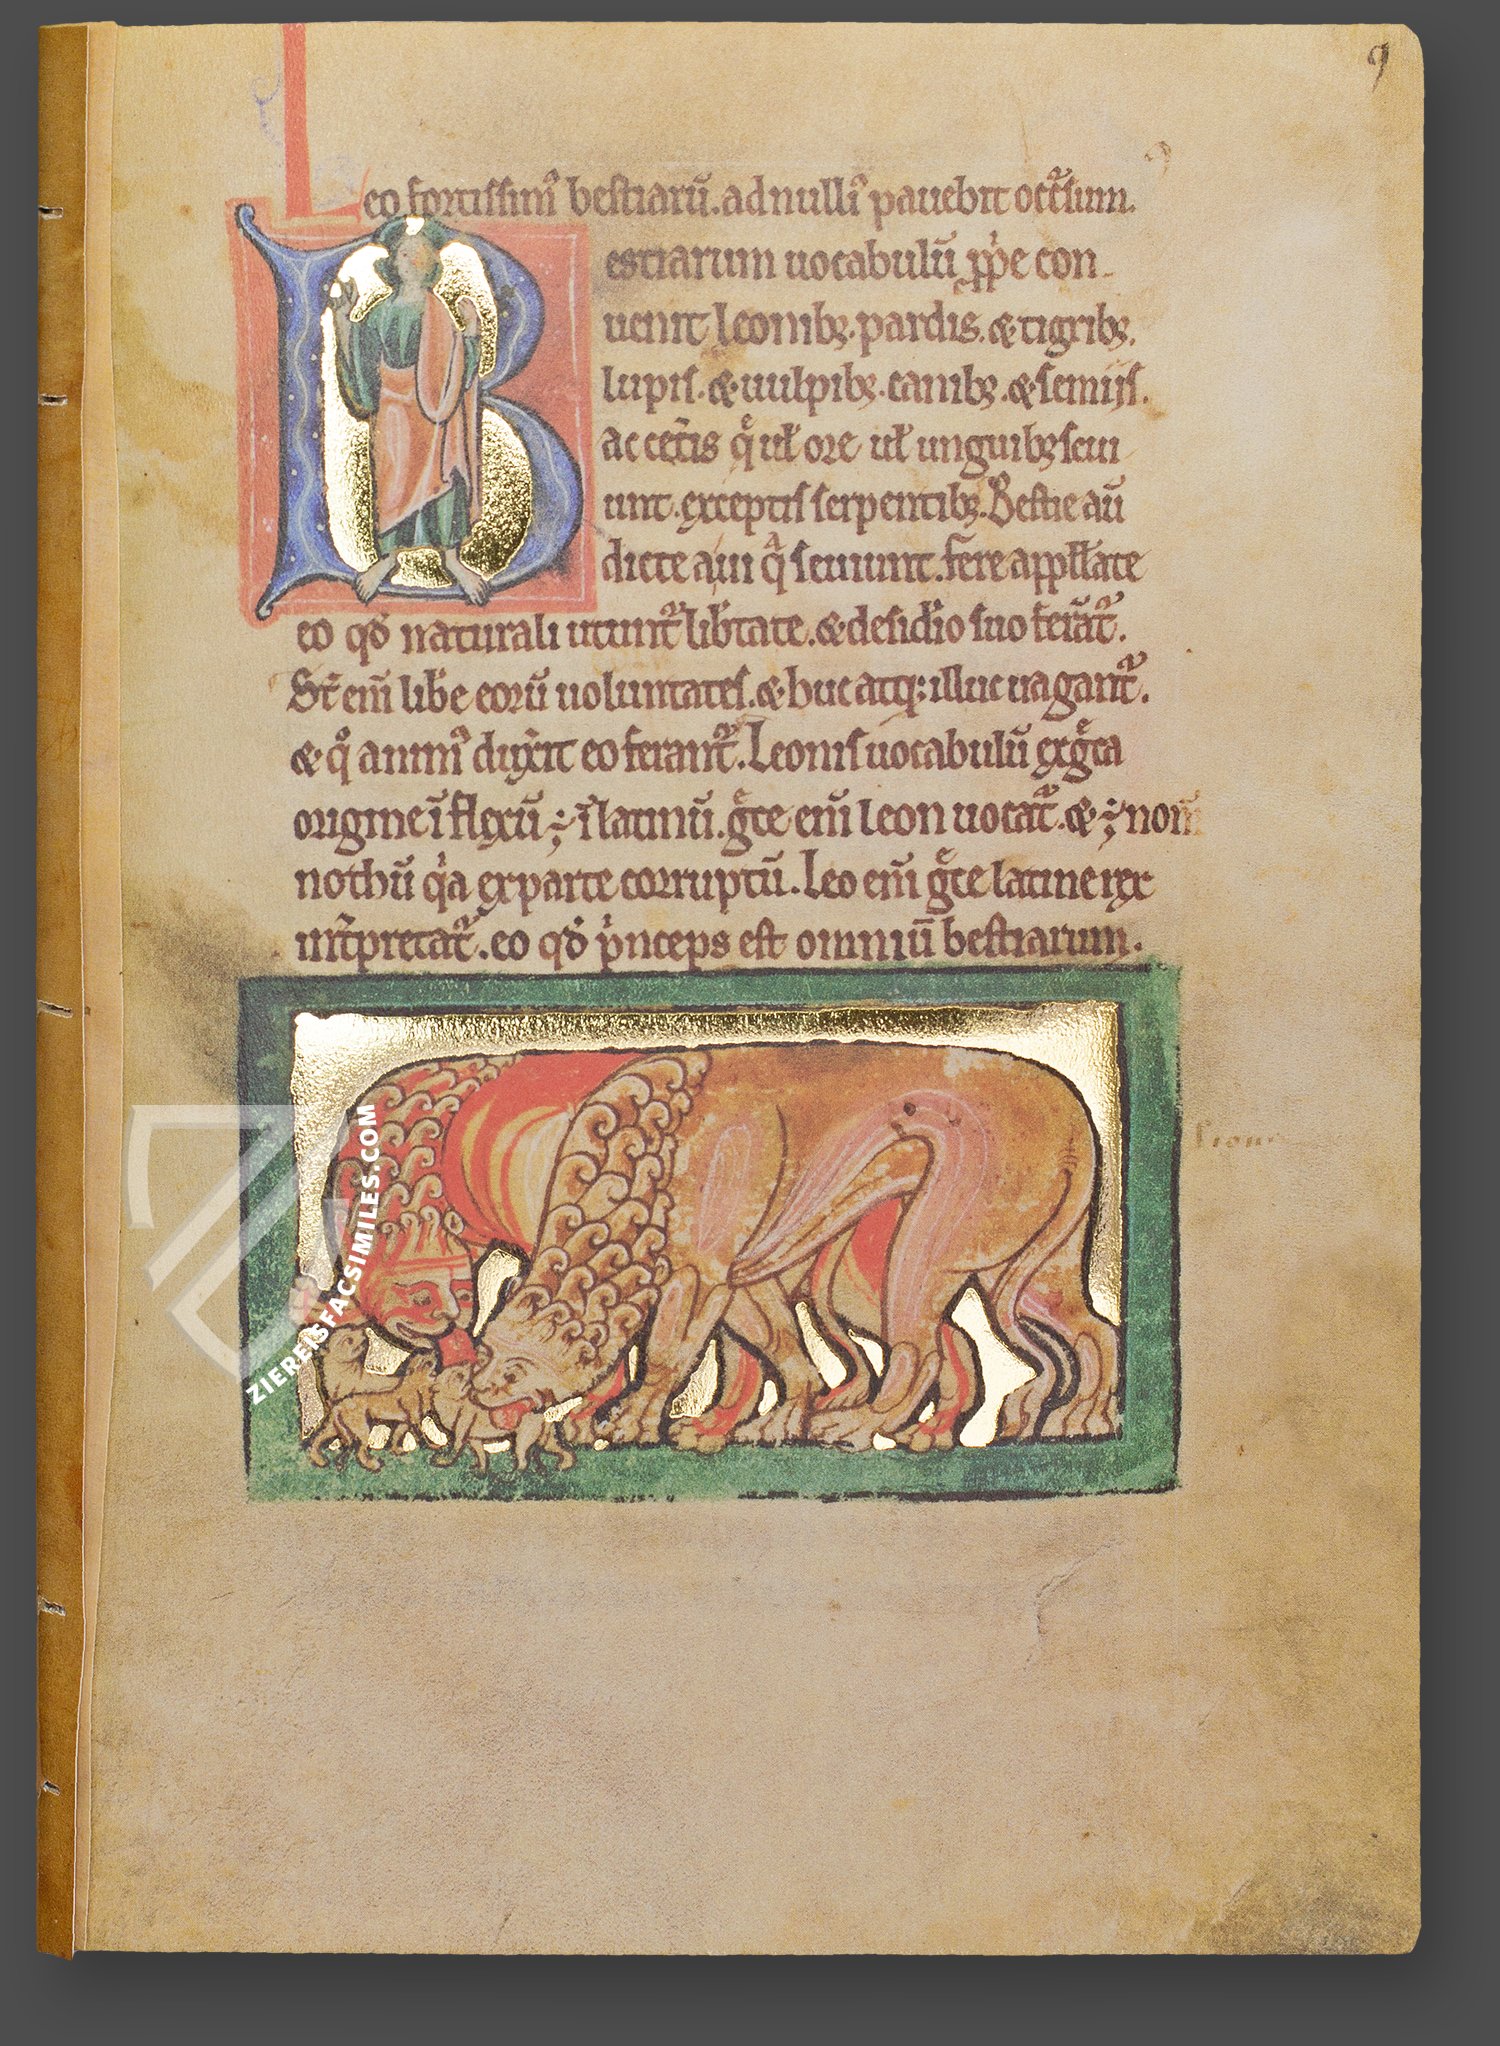 9
Leo fortissim᾿ bestiarū. ad nulli᾿ pauebit occ̄sum.
Bestiarum uocabulū ꝓp̍e con-
uenit leonibꝫ. pardis. & tigribꝫ.
lupis. & uulpibꝫ. canibꝫ. & semiis.
ac cet̄is q̄ uł ore uł unguibꝫ seui
unt. exceptis serpentibꝫ. Bestie aū
dicte a ui qᵃ seuiunt. fere appłłate
eo qđ naturali utunt᷑ lib̄tate. & desid̍io suo ferāt᷑.
St̄ enī lib̄e eorū uoluntates. & huc atq; illuc uagant᷑.
& qͦ anim᾿ dux̍it eo ferant᷑. Leonis uocabulū ex g̊ca
origine īflexū ÷ ī latinū. g̊ce enī leon uocat᷑. & ÷ nom̄
nothū qⁱa ex parte corruptū. Leo enī g̊ce latine rex
int̄pretat᷑. eo qđ pⁱnceps est omniū bestiarum.
ZIEREISFACSIMILES.COM